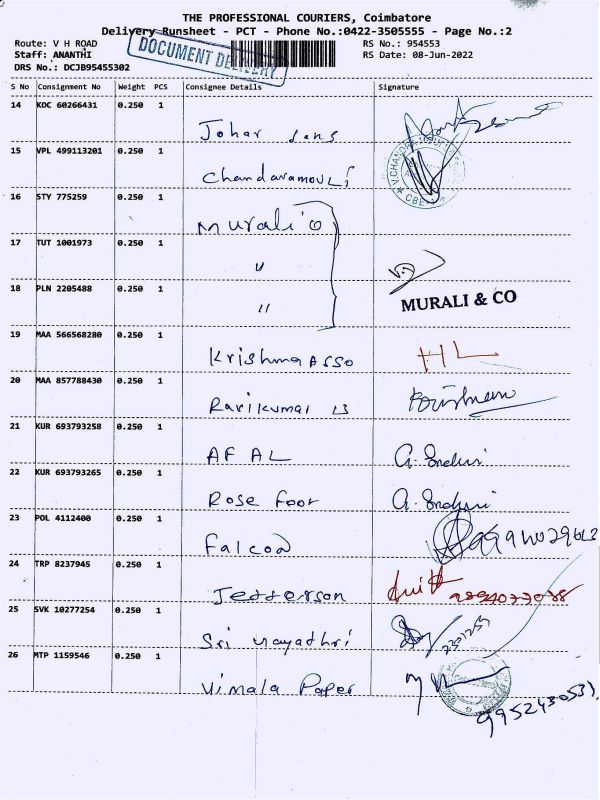 THE PROFESSIONAL COURIERS, Coimbatore
Delivery Runsheet - PCT - Phone No.:0422-3505555 - Page No.:2
Route: V H ROAD
RS No.: 954553
Staff: ANANTHI
RS Date: 08-Jun-2022
DRS No.: DCJB95455302
DOCUMENT DELIVERY
S No Consignment No Weight PCS Consignee Details Signature
14 KOC 60266431 0.250 1
Johar Lens
15 VPL 499113201 0.250 1
Chandaramouli
16 STY 775259 0.250 1
Murali
17 TUT 1001973 0.250 1
"
18 PLN 2205488 0.250 1
"
MURALI & CO
19 MAA 566568280 0.250 1
Krishna Asso
HL
20 MAA 857788430 0.250 1
Ravikumar
21 KUR 693793258 0.250 1
AFAL
22 KUR 693793265 0.250 1
Rose Foor
23 POL 4112400 0.250 1
Falcon
24 TRP 8237945 0.250 1
Jefferson
25 SVK 10277254 0.250 1
Sri
26 MTP 1159546 0.250 1
Vimala Paper